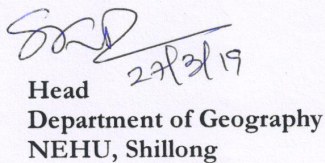 27/3/19
Head
Department of Geography
NEHU, Shillong